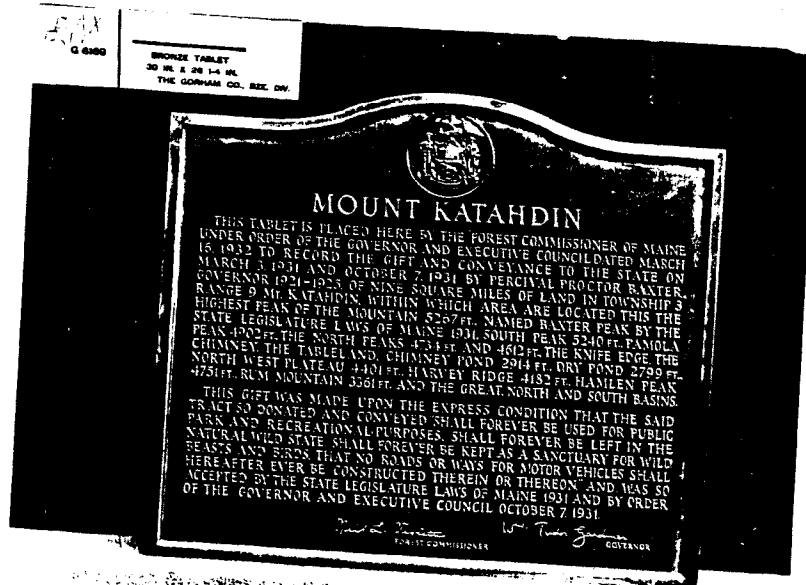 G 6169
BRONZE TABLET
30 IN. X 26 1-4 IN.
THE GORHAM CO., BZE. DIV.
MOUNT KATAHDIN
THIS TABLET IS PLACED HERE BY THE FOREST COMMISSIONER OF MAINE
UNDER ORDER OF THE GOVERNOR AND EXECUTIVE COUNCIL DATED MARCH
16, 1932 TO RECORD THE GIFT AND CONVEYANCE TO THE STATE ON
MARCH 3, 1931 AND OCTOBER 7, 1931 BY PERCIVAL PROCTOR BAXTER,
GOVERNOR 1921-1925, OF NINE SQUARE MILES OF LAND IN TOWNSHIP 3
RANGE 9 MT. KATAHDIN, WITHIN WHICH AREA ARE LOCATED THIS THE
HIGHEST PEAK OF THE MOUNTAIN 5267 FT., NAMED BAXTER PEAK BY THE
STATE LEGISLATURE LAWS OF MAINE 1931, SOUTH PEAK 5240 FT., PAMOLA
PEAK 4902 FT., THE NORTH PEAKS 4734 FT. AND 4612 FT., THE KNIFE EDGE, THE
CHIMNEY, THE TABLELAND, CHIMNEY POND 2914 FT., DRY POND 2799 FT.,
NORTH WEST PLATEAU 4401 FT., HARVEY RIDGE 4182 FT., HAMLEN PEAK
4751 FT., RUM MOUNTAIN 3361 FT. AND THE GREAT, NORTH AND SOUTH BASINS.
THIS GIFT WAS MADE UPON THE EXPRESS CONDITION THAT THE SAID
TRACT SO DONATED AND CONVEYED "SHALL FOREVER BE USED FOR PUBLIC
PARK AND RECREATIONAL PURPOSES, SHALL FOREVER BE LEFT IN THE
NATURAL WILD STATE, SHALL FOREVER BE KEPT AS A SANCTUARY FOR WILD
BEASTS AND BIRDS, THAT NO ROADS OR WAYS FOR MOTOR VEHICLES SHALL
HEREAFTER EVER BE CONSTRUCTED THEREIN OR THEREON" AND WAS SO
ACCEPTED BY THE STATE LEGISLATURE LAWS OF MAINE 1931 AND BY ORDER
OF THE GOVERNOR AND EXECUTIVE COUNCIL OCTOBER 7, 1931.
Wm Tudor Gardiner
FOREST COMMISSIONER GOVERNOR